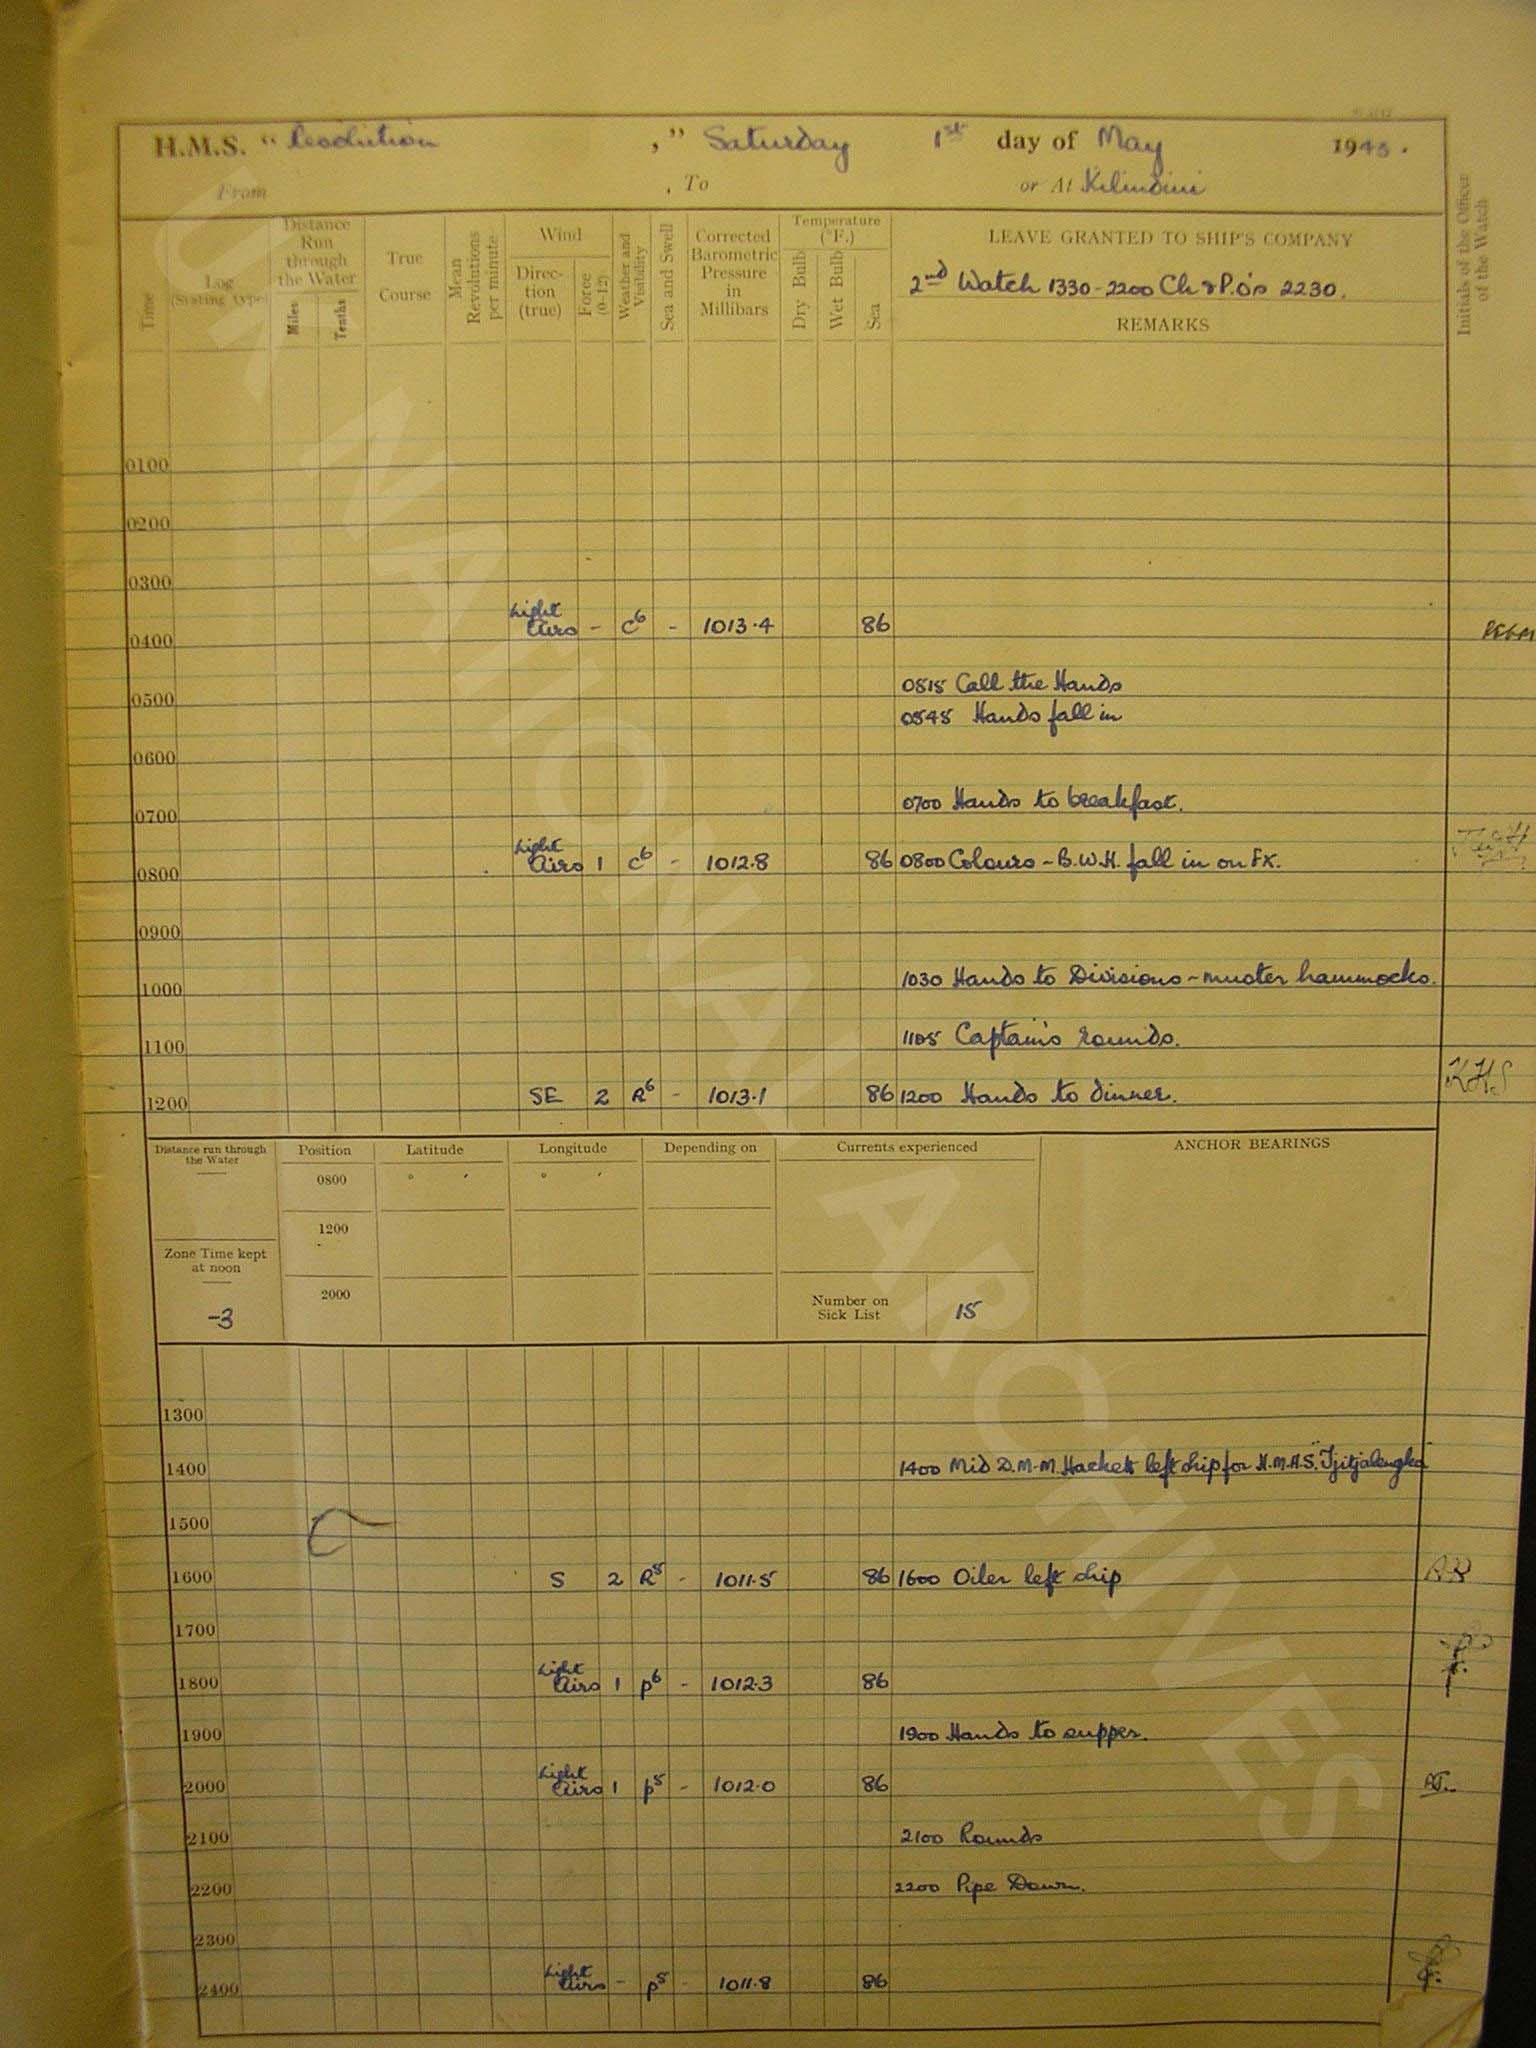 H.M.S. "Resolution ," Saturday 1st day of May 1943.
From , To or At Kilindini
Time
Log (Stating type)
Distance Run through the Water
Miles
Tenths
True Course
Mean Revolutions per minute
Wind
Direc-tion (true)
Force (0-12)
Weather and Visibility
Sea and Swell
Corrected Barometric Pressure in Millibars
Temperature (°F.)
Dry Bulb
Wet Bulb
Sea
LEAVE GRANTED TO SHIP'S COMPANY
2nd Watch 1330-2200 Ch & P.O's 2230.
REMARKS
Initials of the Officer of the Watch
0100
0200
0300
0400 Light Airs - c6 - 1013.4 86
0515 Call the Hands
0500
0545 Hands fall in
0600
0700 Hands to breakfast.
0700
0800 Light Airs 1 c6 - 1012.8 86 0800 Colours - B.W.H. fall in on FX.
0900
1030 Hands to Divisions - muster hammocks.
1000
1105 Captain's rounds.
1100
1200 SE 2 R6 - 1013.1 86 1200 Hands to dinner. KHS
Distance run through the Water
Position Latitude Longitude Depending on Currents experienced ANCHOR BEARINGS
0800 ° ′ ° ′
1200
Zone Time kept at noon
-3
2000
Number on Sick List 15
1300
1400 1400 Mid D.M.M. Hackett left ship for H.M.H.S. "Tjitjalengka"
1500
1600 S 2 R5 - 1011.5 86 1600 Oiler left ship
1700
1800 Light Airs 1 p6 - 1012.3 86
1900 1900 Hands to supper.
2000 Light Airs 1 p5 - 1012.0 86
2100 2100 Rounds
2200 2200 Pipe Down.
2300
2400 Light Airs - p5 - 1011.8 86
UK NATIONAL ARCHIVES